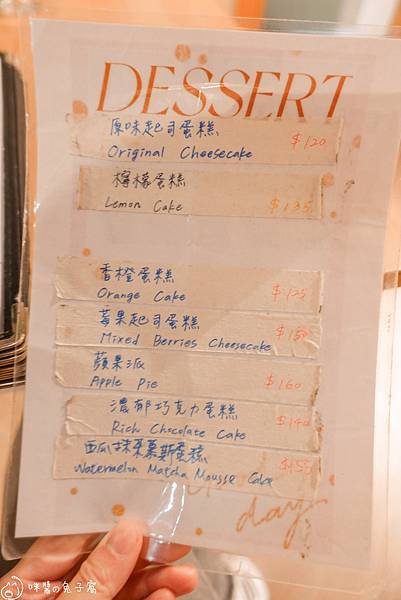 DESSERT
原味起司蛋糕
Original Cheesecake $120
檸檬蛋糕
Lemon Cake $135
香橙蛋糕
Orange Cake $125
莓果起司蛋糕
Mixed Berries Cheesecake
蘋果派
Apple Pie $160
濃郁巧克力蛋糕
Rich Chocolate Cake $140
西瓜抹茶慕斯蛋糕
Watermelon Matcha Mousse Cake $155
day
咪醬の兔子窩